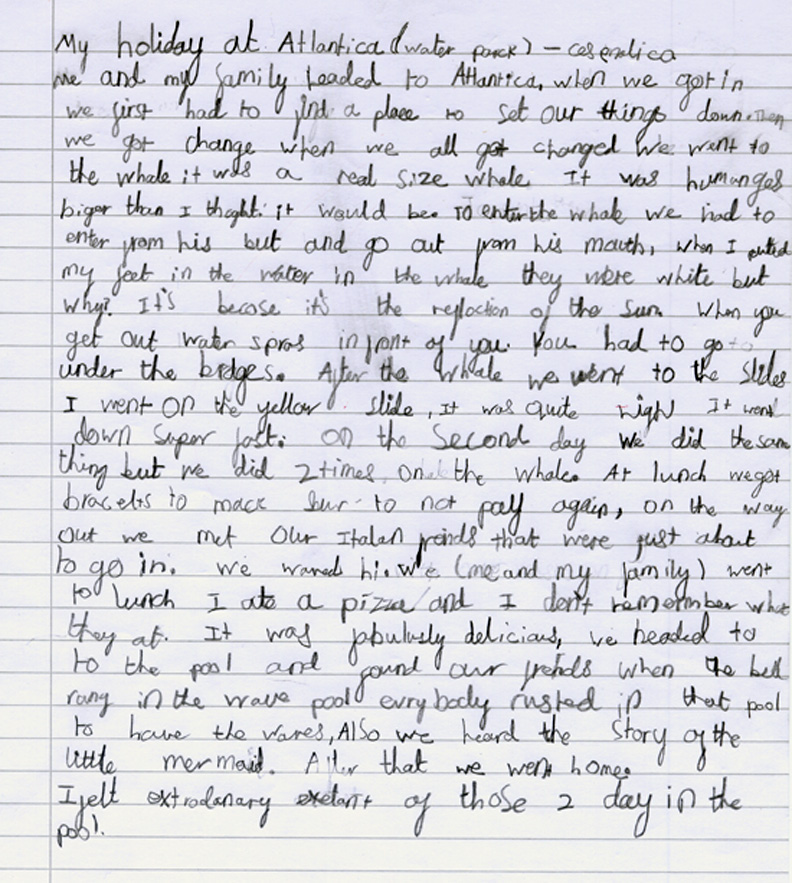 My holiday at Atlantica (water parck) - cesendica
me and my family headed to Atlantica, when we got in
we first had to find a place to set our things down. Then
we got change when we all got changed we went to
the whale it was a real size whale. It was humanges
biger than I thoght it would be. To enter the whale we had to
enter from his but and go out from his mouth, when I puted
my feet in the water in the whale they were white but
why? It's becose it's the reflaction of the sun. When you
get out water spras in front of you. You had to go to
under the bridges. After the whale we went to the slides
I went on the yellow slide, it was quite high It went
down super fast. On the second day we did the same
thing but we did 2 times on the whale. At lunch we got
bracelts to mack sur to not pay again, on the way
out we met our Italan freinds that were just about
to go in. we waved hi. we (me and my family) went
to lunch I ate a pizza and I don't rememmber what
they at. It was fabulusly delicious, we headed to
to the pool and found our freinds when the bell
rang in the wave pool evrybody rushed in that pool
to have the waves, Also we heard the story of the
little mermaid. After that we went home.
I felt extrodanary of those 2 day in the
pool.